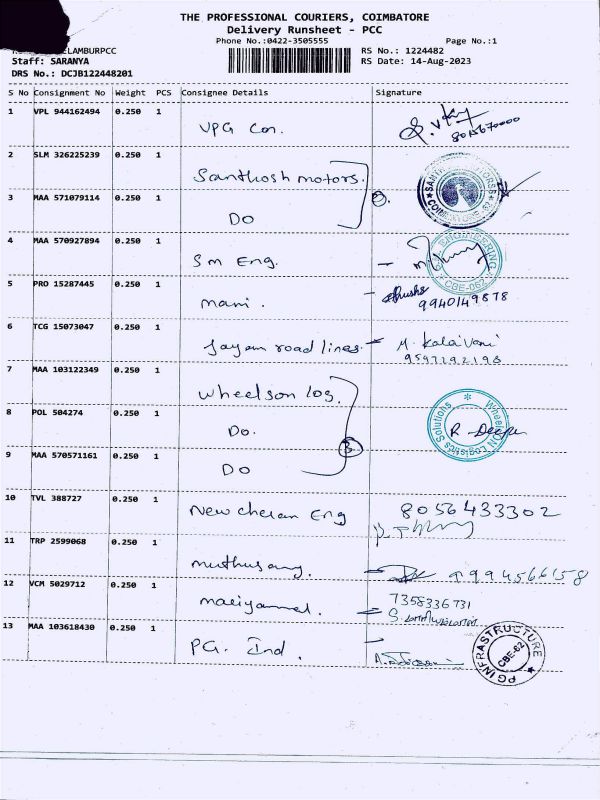 THE PROFESSIONAL COURIERS, COIMBATORE
Delivery Runsheet - PCC
Phone No.:0422-3505555 Page No.:1
ELAMBURPCC RS No.: 1224482
Staff: SARANYA RS Date: 14-Aug-2023
DRS No.: DCJB122448201
S No Consignment No Weight PCS Consignee Details Signature
1 VPL 944162494 0.250 1 VPG Con.
2 SLM 326225239 0.250 1 Santhosh motors.
3 MAA 571079114 0.250 1 DO
4 MAA 570927894 0.250 1 Sm Eng.
CBE-062
5 PRO 15287445 0.250 1 mani.
9940149878
6 TCG 15073047 0.250 1 Jayam road lines. M. Kalaivani
9597292198
7 MAA 103122349 0.250 1 Wheelson log.
8 POL 504274 0.250 1 Do. R. Deepa
9 MAA 570571161 0.250 1 DO
10 TVL 388727 0.250 1 New cheran Eng 8056433302
11 TRP 2599068 0.250 1 muthusamy. 9994566158
12 VCM 5029712 0.250 1 7358336731
13 MAA 103618430 0.250 1 PG. Ind.
PG INFRASTRUCTURE
CBE-62